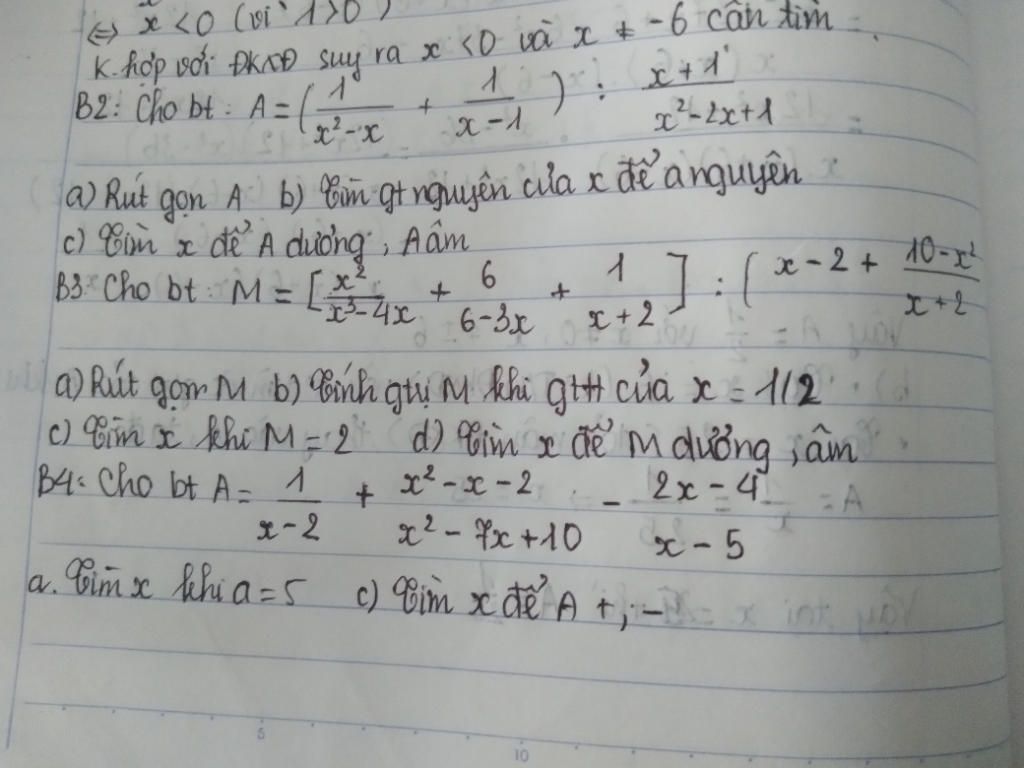 ⇔ x < 0 (vì 1 > 0)
K.hợp với ĐKXĐ suy ra x < 0 và x ≠ -6 cần tìm
B2: Cho bt: A = (1/(x² - x) + 1/(x - 1)) : (x + 1)/(x² - 2x + 1)
a) Rút gọn A b) Tìm gt nguyên của x để a nguyên
c) Tìm x để A dương, A âm
B3: Cho bt: M = [x²/(x³ - 4x) + 6/(6 - 3x) + 1/(x + 2)] : (x - 2 + (10 - x²)/(x + 2)
a) Rút gọn M b) Tính gtrị M khi gttđ của x = 1/2
c) Tìm x khi M = 2 d) Tìm x để M dương, âm
B4: Cho bt A = 1/(x - 2) + (x² - x - 2)/(x² - 7x + 10) - (2x - 4)/(x - 5)
a. Tìm x khi a = 5 c) Tìm x để A +, -
5 10